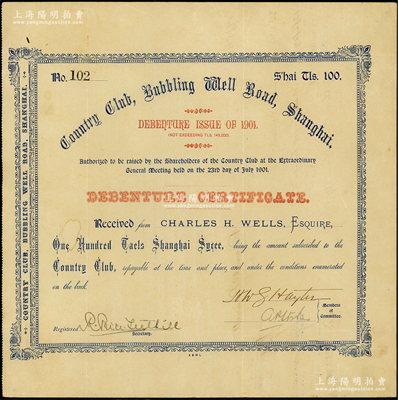 上海陽明拍賣
www.sypm.com.cn
No. 102
S'hai Tls. 100.
Country Club, Bubbling Well Road, Shanghai.
DEBENTURE ISSUE OF 1901.
Authorized to be raised by the Shareholders of the Country Club at the Extraordinary
General Meeting held on the 23rd day of July 1901.
DEBENTURE CERTIFICATE.
Received from CHARLES H. WELLS, ESQUIRE,
One Hundred Taels Shanghai Sycee, being the amount subscribed to the
Country Club, repayable at the time and place, and under the conditions enumerated
on the back.
Members
of
Committee.
Registered
Secretary.
COUNTRY CLUB, BUBBLING WELL ROAD, SHANGHAI.